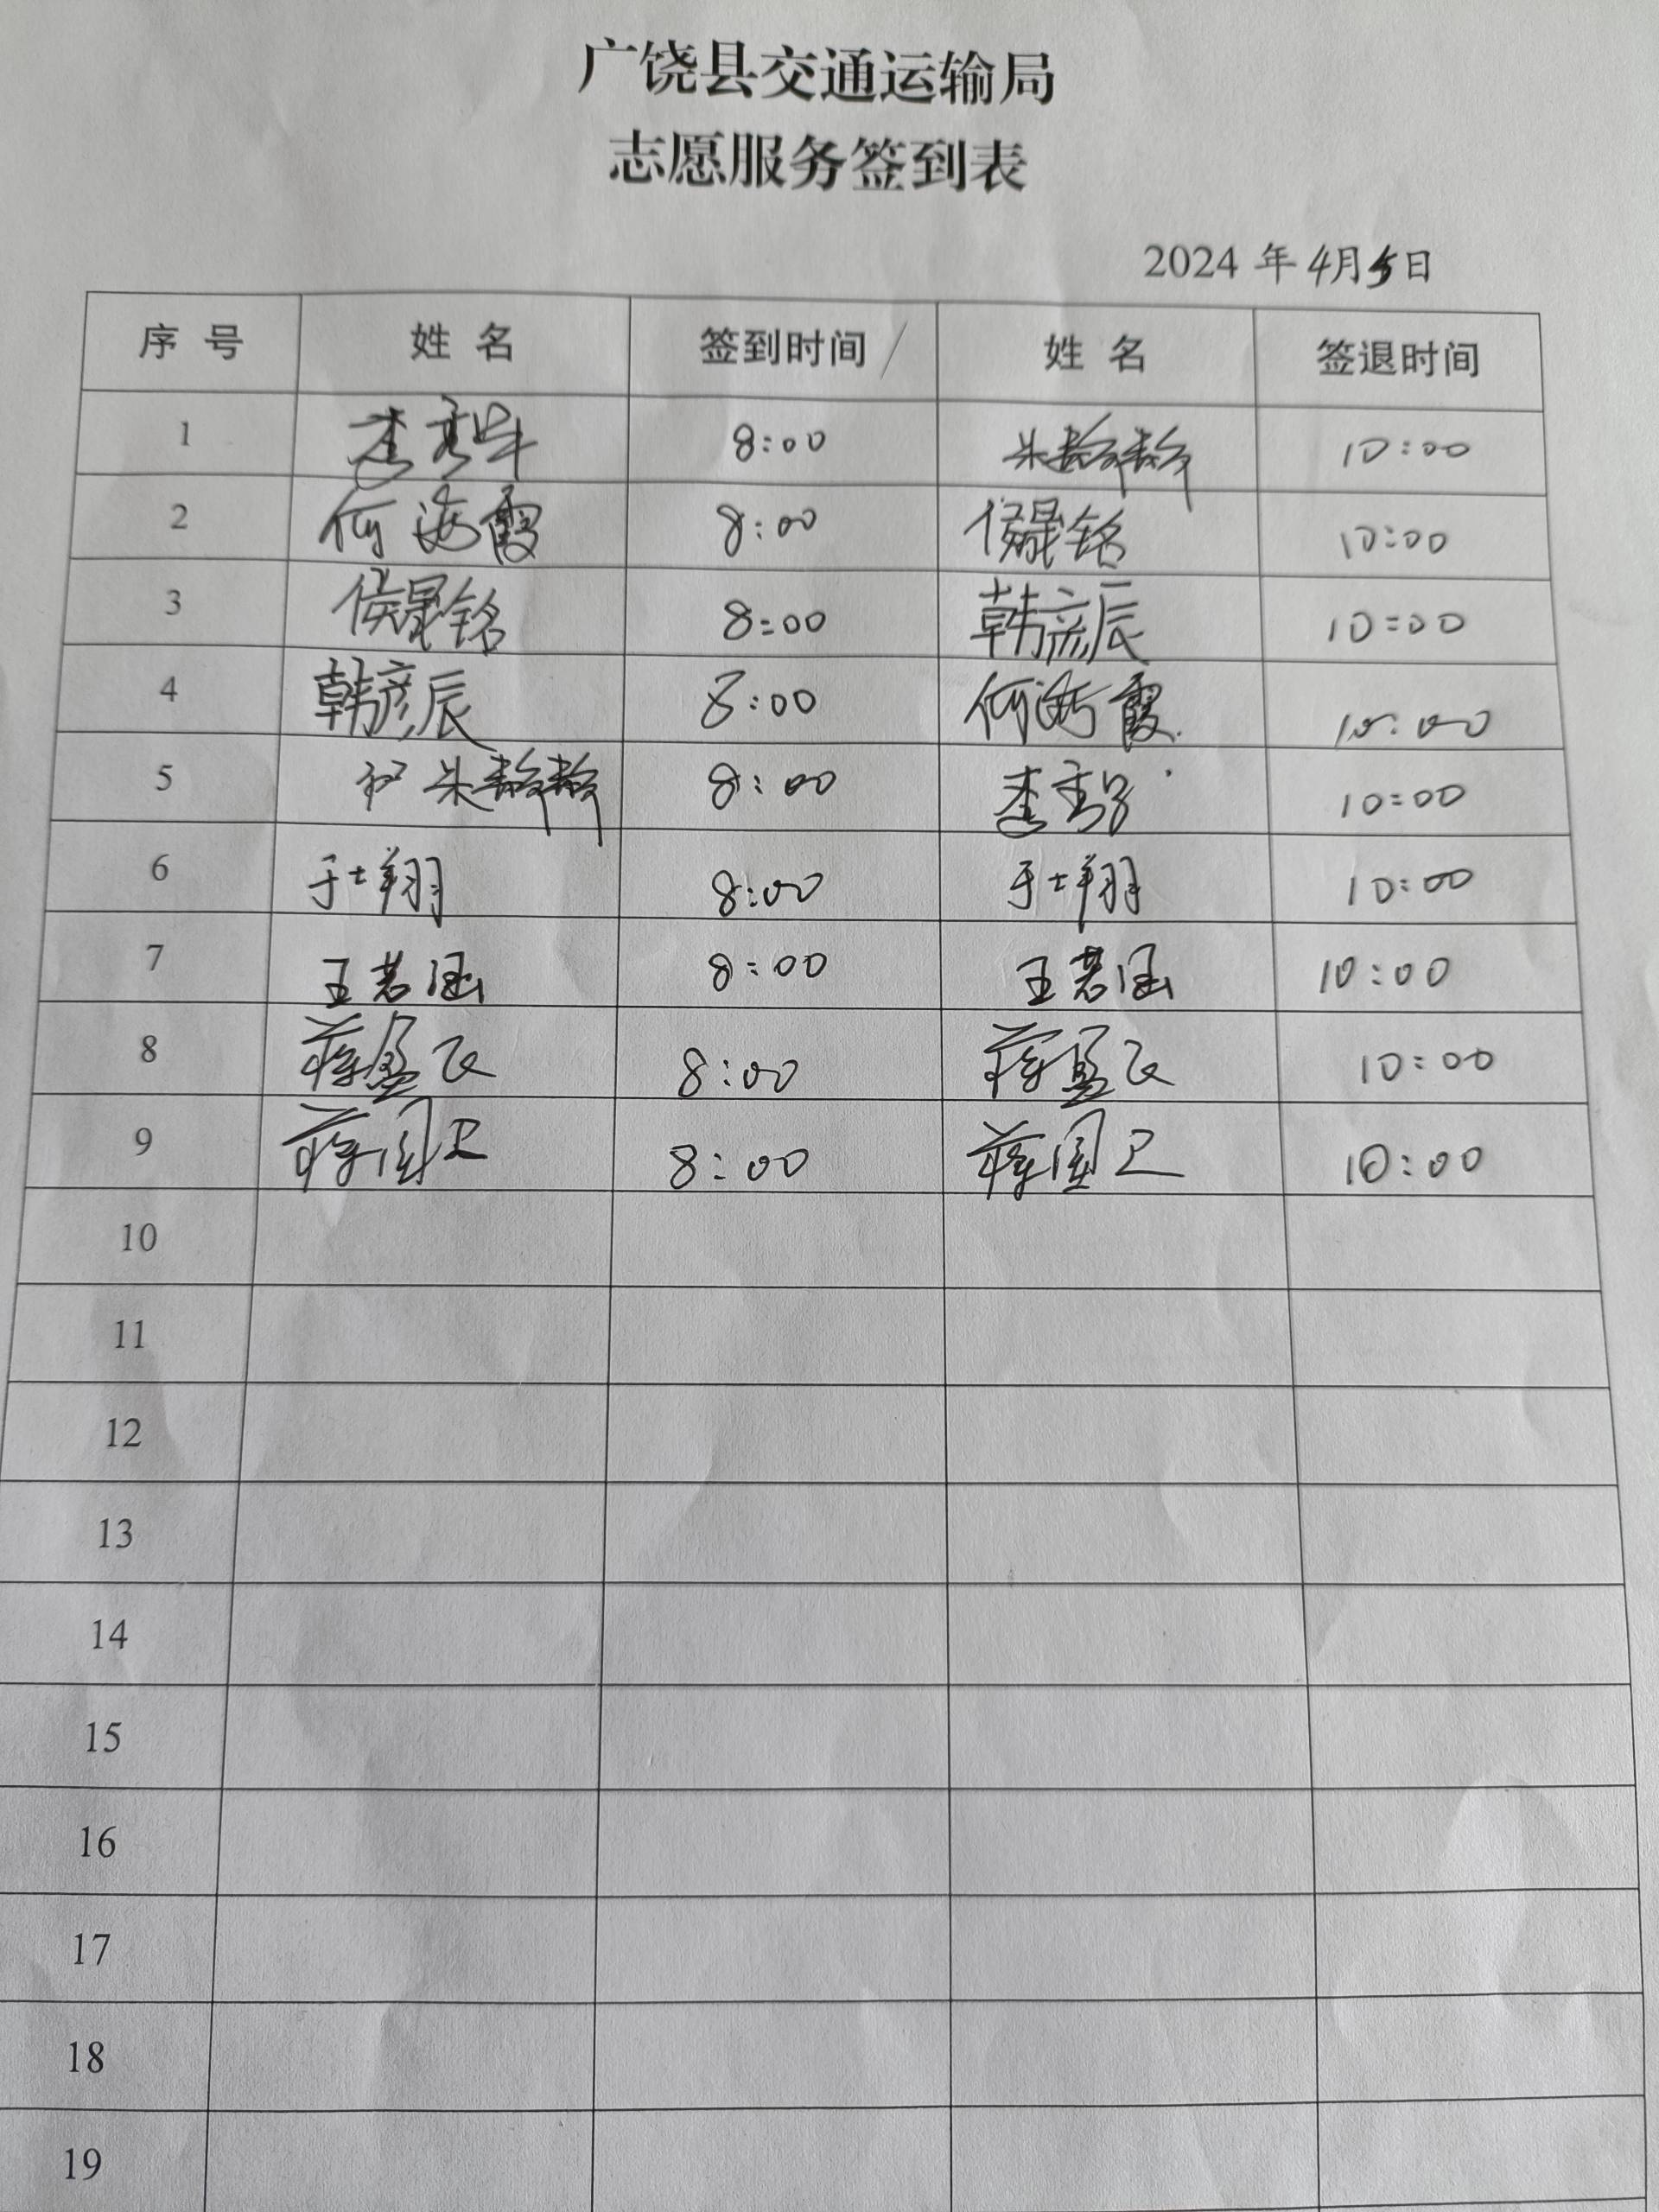 广饶县交通运输局
志愿服务签到表
2024 年 4月5日
序 号 姓 名 签到时间 / 姓 名 签退时间
1 李 8:00 朱 10:00
2 何海霞 8:00 侯晟铭 10:00
3 侯晟铭 8:00 韩彦辰 10:00
4 韩彦辰 8:00 何海霞 10:00
5 朱 8:00 李 10:00
6 于士翔 8:00 于士翔 10:00
7 王若涵 8:00 王若涵 10:00
8 蒋盈飞 8:00 蒋盈飞 10:00
9 蒋国卫 8:00 蒋国卫 10:00
10
11
12
13
14
15
16
17
18
19